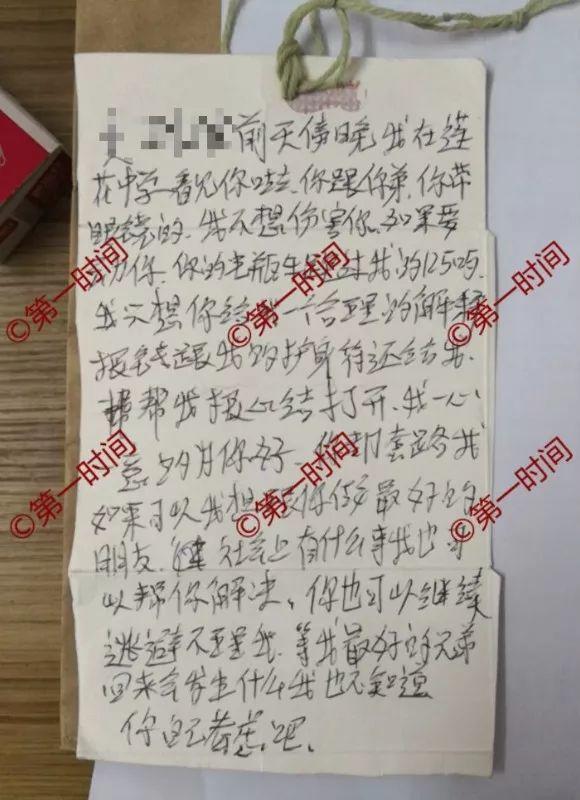 前天傍晚我在莲
花中学看见你哒.你跟你弟.你带
眼镜的.我不想伤害你.如果要
你.你的电瓶车 过我的125吗.
我只想你给我一个合理的解释
把 跟我的护身符还给我.
帮我把心结打开、我一心
意的对你好 你却套路我
如果可以我想跟你做最好的
朋友. 社会上有什么事我也可
以帮你解决、你也可以继续
逃避不理我.等我最好的兄弟
回来会发生什么我也不知道
你自己看着 吧、
©第一时间
©第一时间
©第一时间
©第一时间
©第一时间
©第一时间